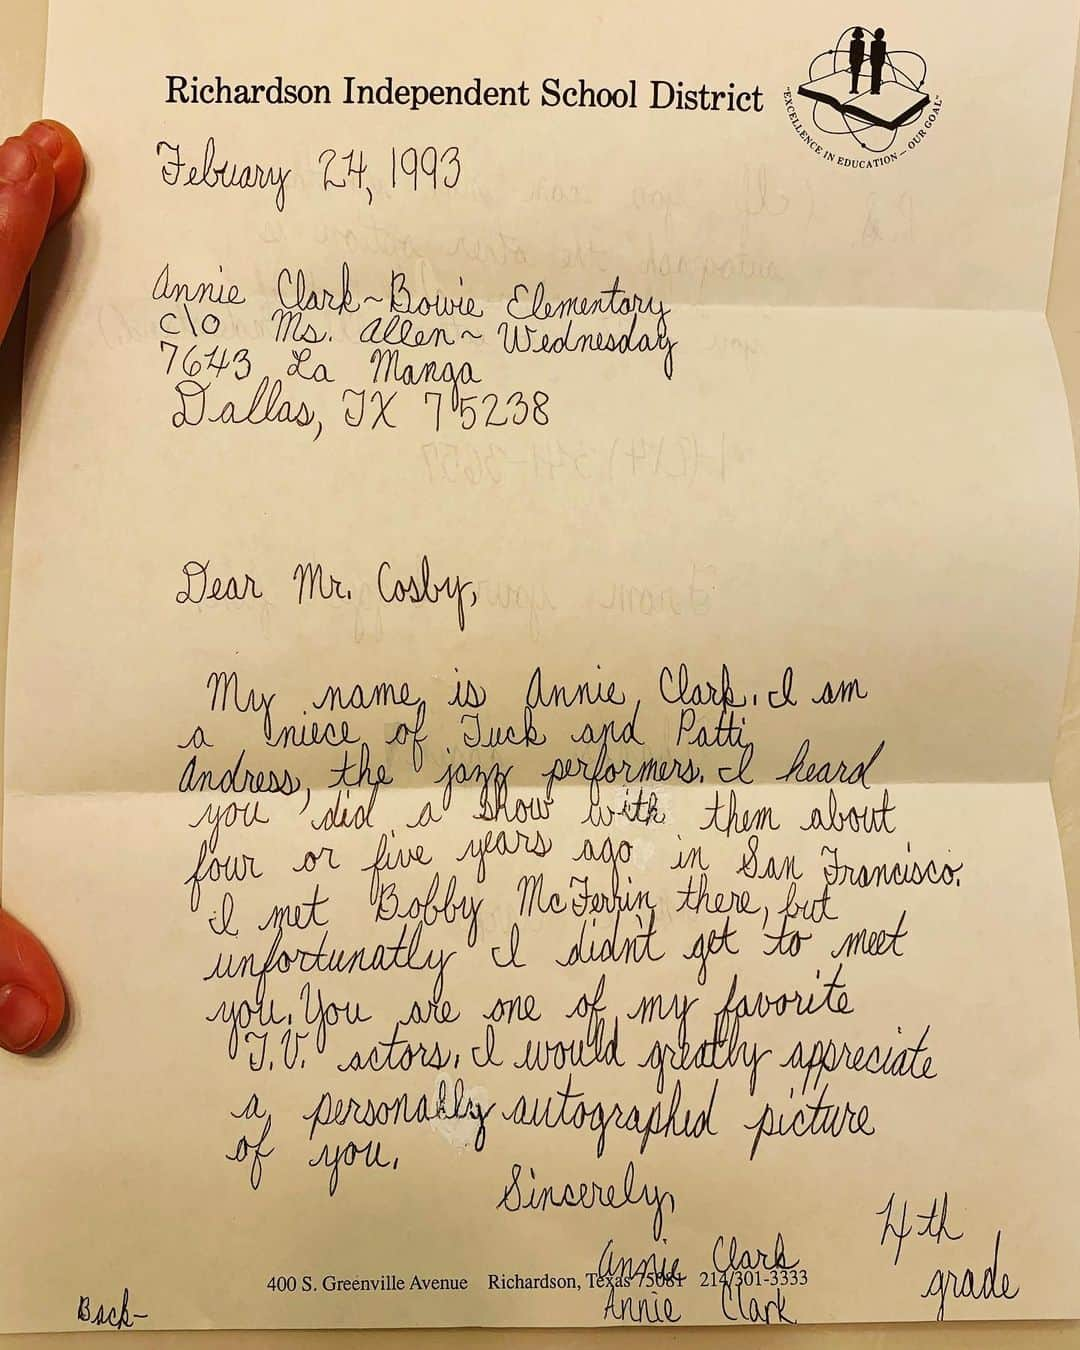 Richardson Independent School District
"EXCELLENCE IN EDUCATION — OUR GOAL"
Febuary 24, 1993
Annie Clark~Bowie Elementary
c/o Ms. Allen~Wednesday
7643 La Manga
Dallas, TX 75238
Dear Mr. Cosby,
My name is Annie Clark. I am
a niece of Tuck and Patti
Andress, the jazz performers. I heard
you did a show with them about
four or five years ago in San Francisco.
I met Bobby McFerrin there, but
unfortunatly I didn't get to meet
you. You are one of my favorite
T.V. actors. I would greatly appreciate
a personally autographed picture
of you.
Sincerely,
Annie Clark
4th
grade
400 S. Greenville Avenue Richardson, Texas 75081 214/301-3333
Annie Clark
Back-